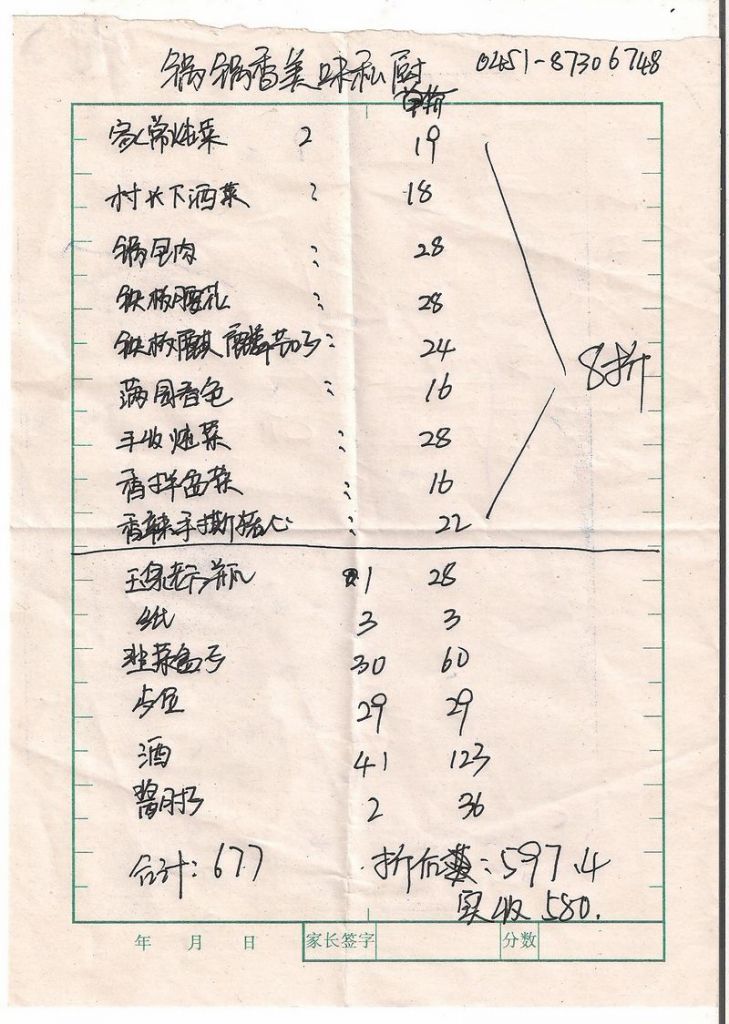 锅锅香美味私厨 0451-87306748
单价
家常炖菜 2 19
村长下酒菜 : 18
锅包肉 : 28
铁板腰花 : 28
铁板 : 24
满园香色 : 16
丰收炖菜 : 28
香拌苗菜 : 16
香辣手撕 心 : 22
8折
玉泉 瓶 1 28
纸 3 3
韭菜盒子 30 60
29 29
酒 41 123
酱肘子 2 36
合计:677 折后 :597.4
实收 580.
年 月 日 家长签字 分数